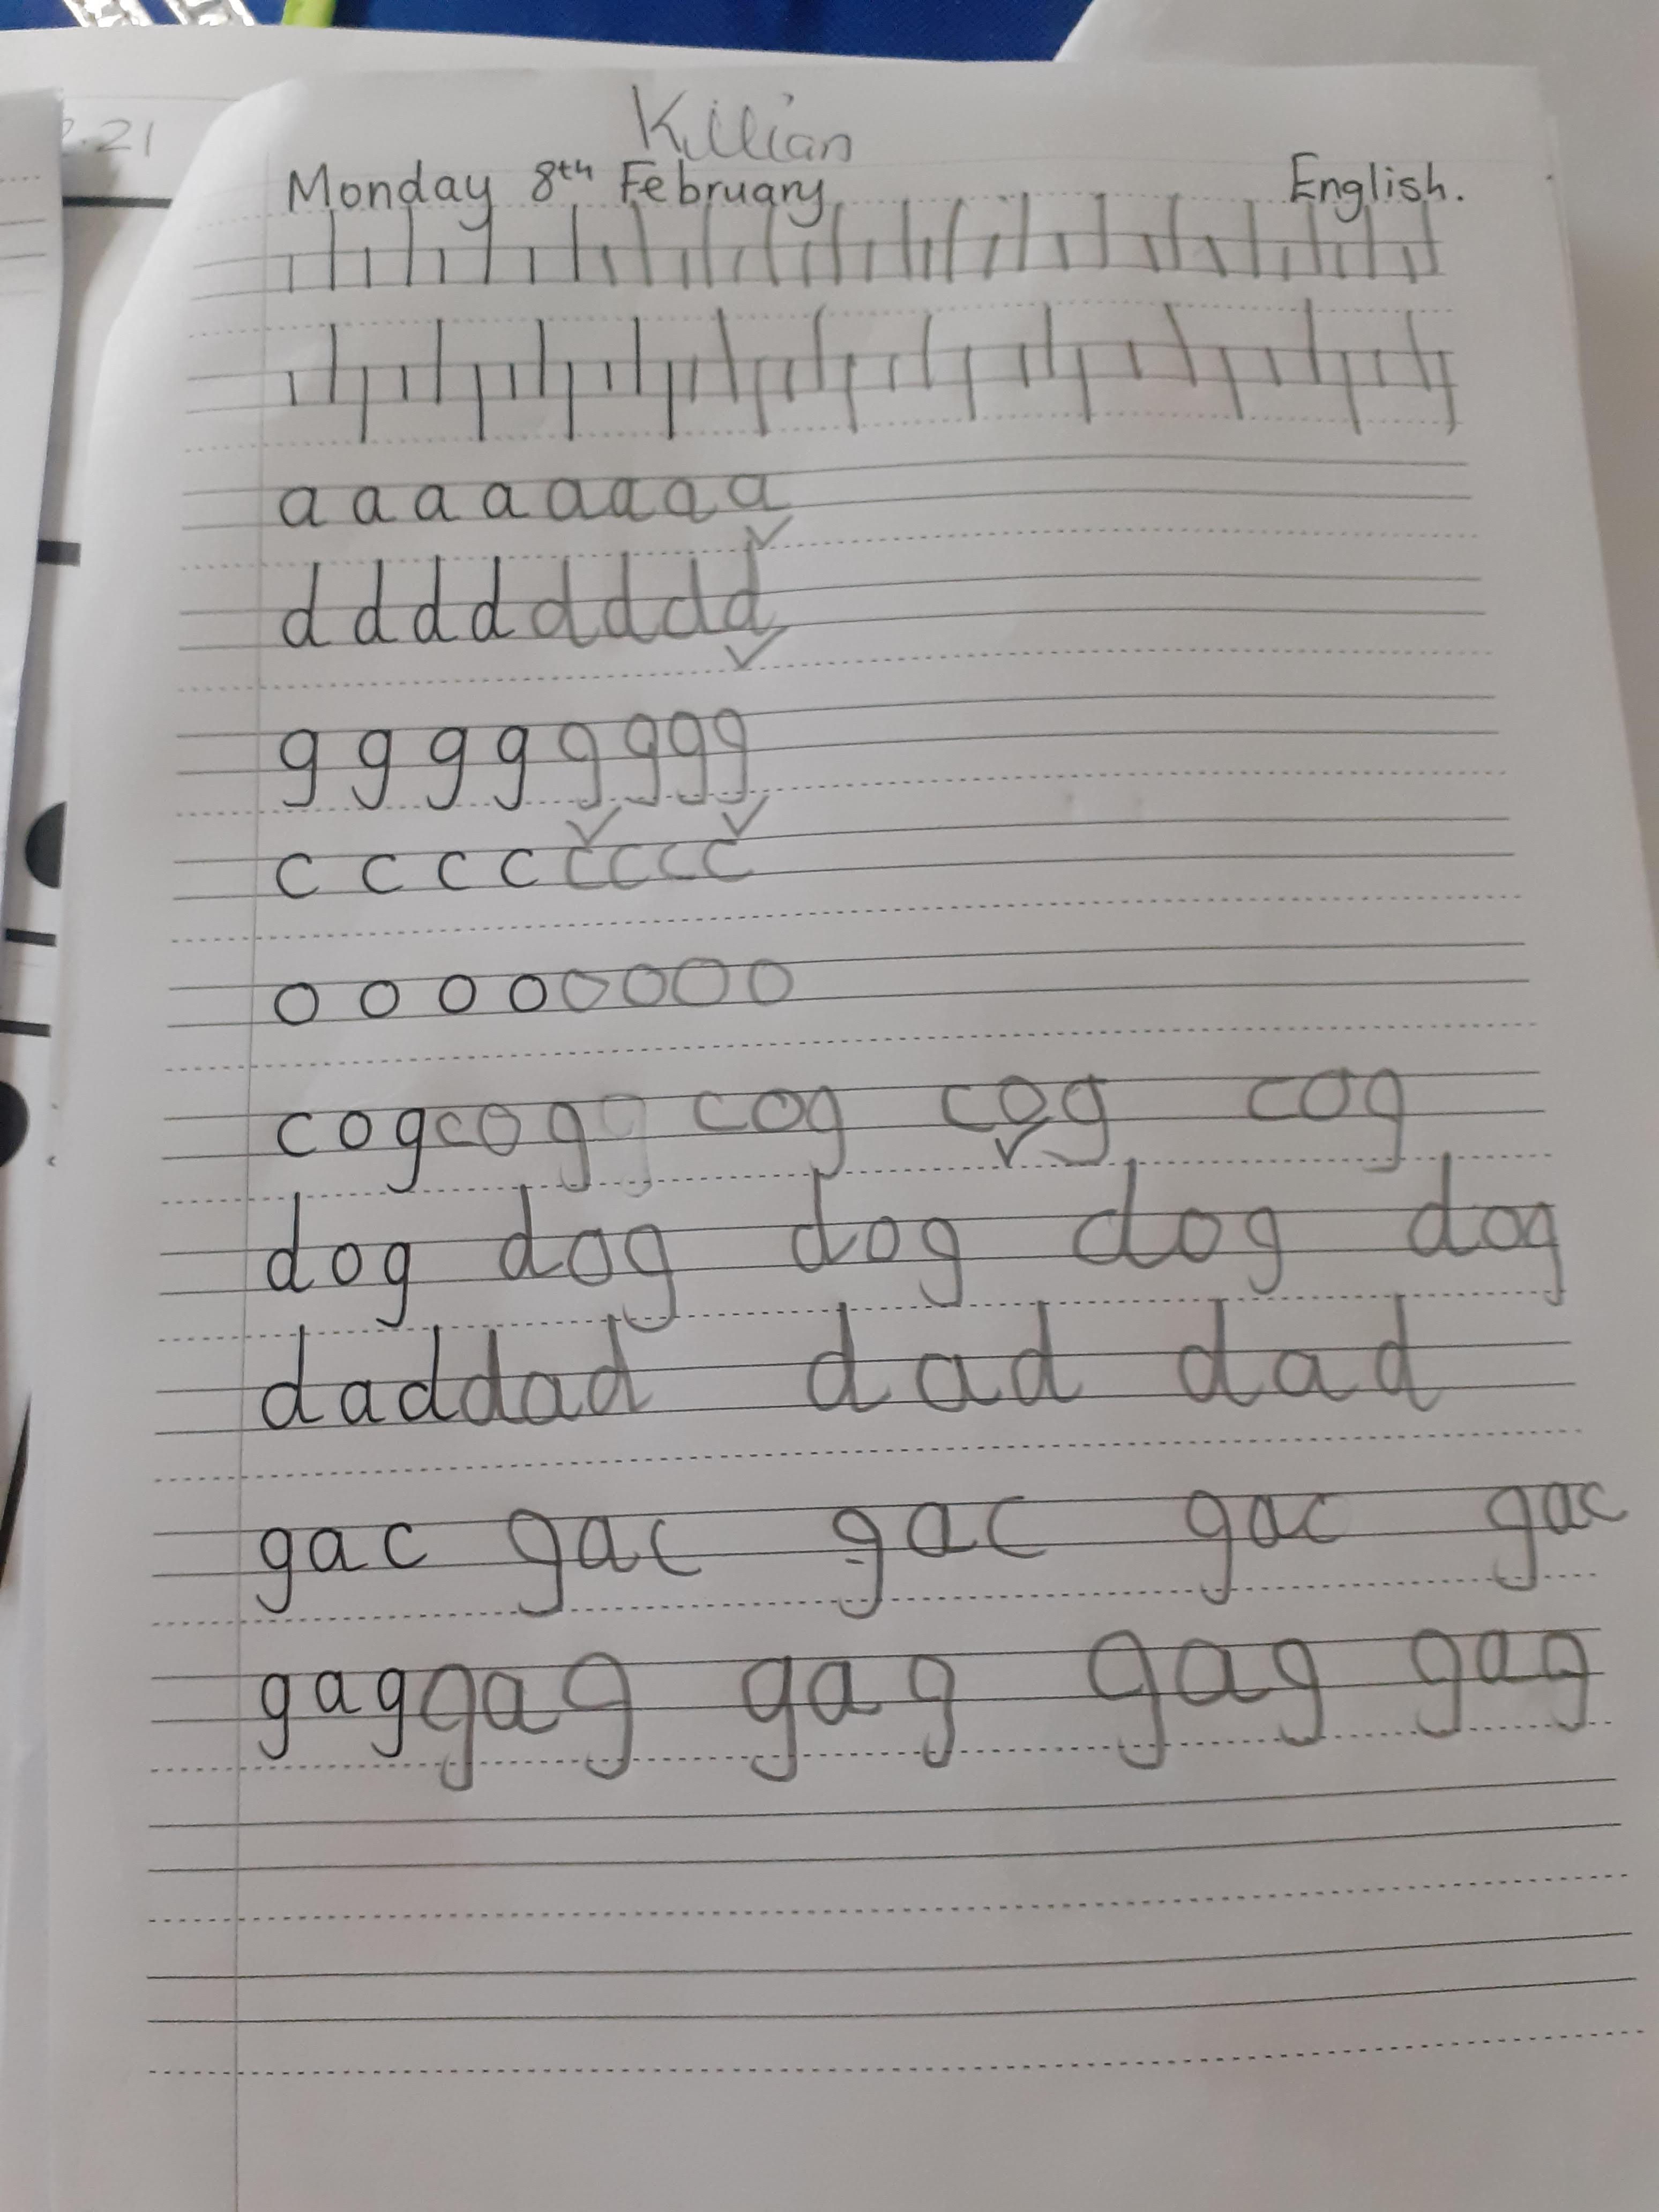 2.21
Killian
Monday 8th February English.
a a a a a a a a
d d d d d d d d
g g g g g g g g
c c c c c c c c
o o o o o o o o
cog cog g cog cog cog
dog dog dog dog dog
dad dad dad dad
gac gac gac gac gac
gag gag gag gag gag